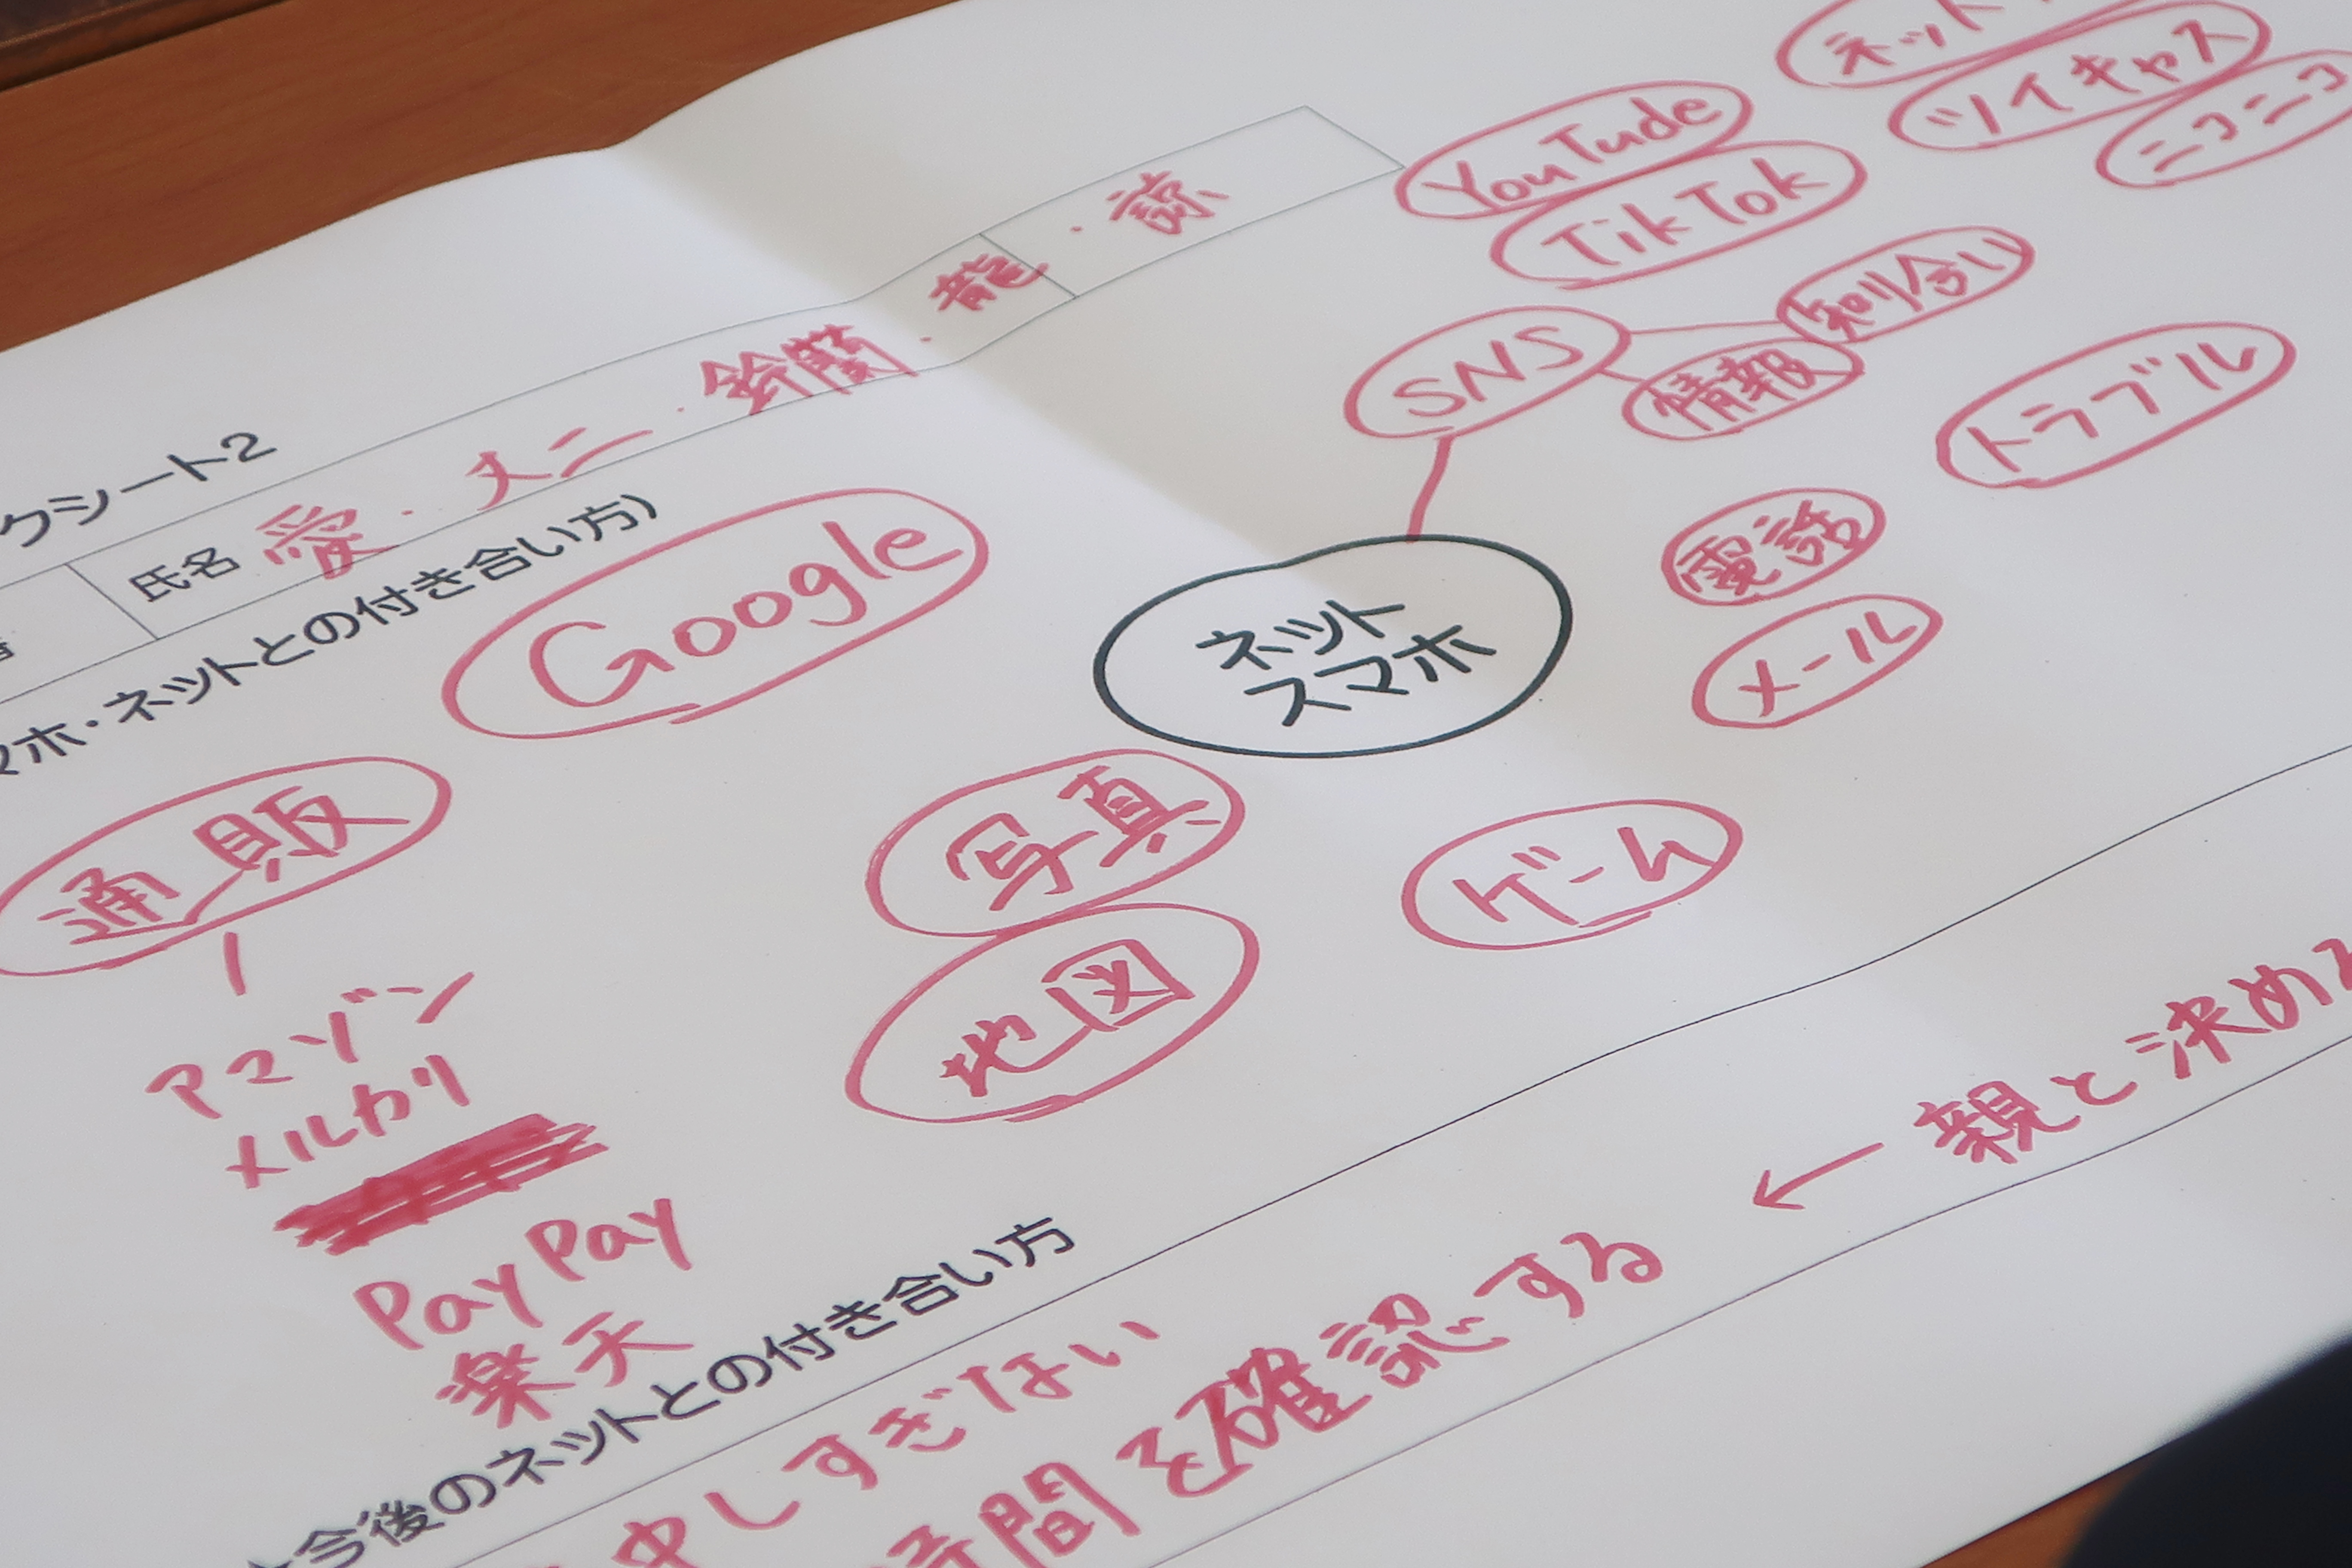 クシート2
氏名 愛・メニ・鈴蘭・龍・諒
マホ・ネットとの付き合い方)
ネット
ツイキャス
ニコニコ
YouTude
TikTok
SNS
知り合い
情報
トラブル
Google
ネット
スマホ
電話
メール
通販
写真
ゲーム
地図
アマゾン
メルカリ
PayPay
楽天
今後のネットとの付き合い方
中しすぎない
時間を確認する ← 親と決める